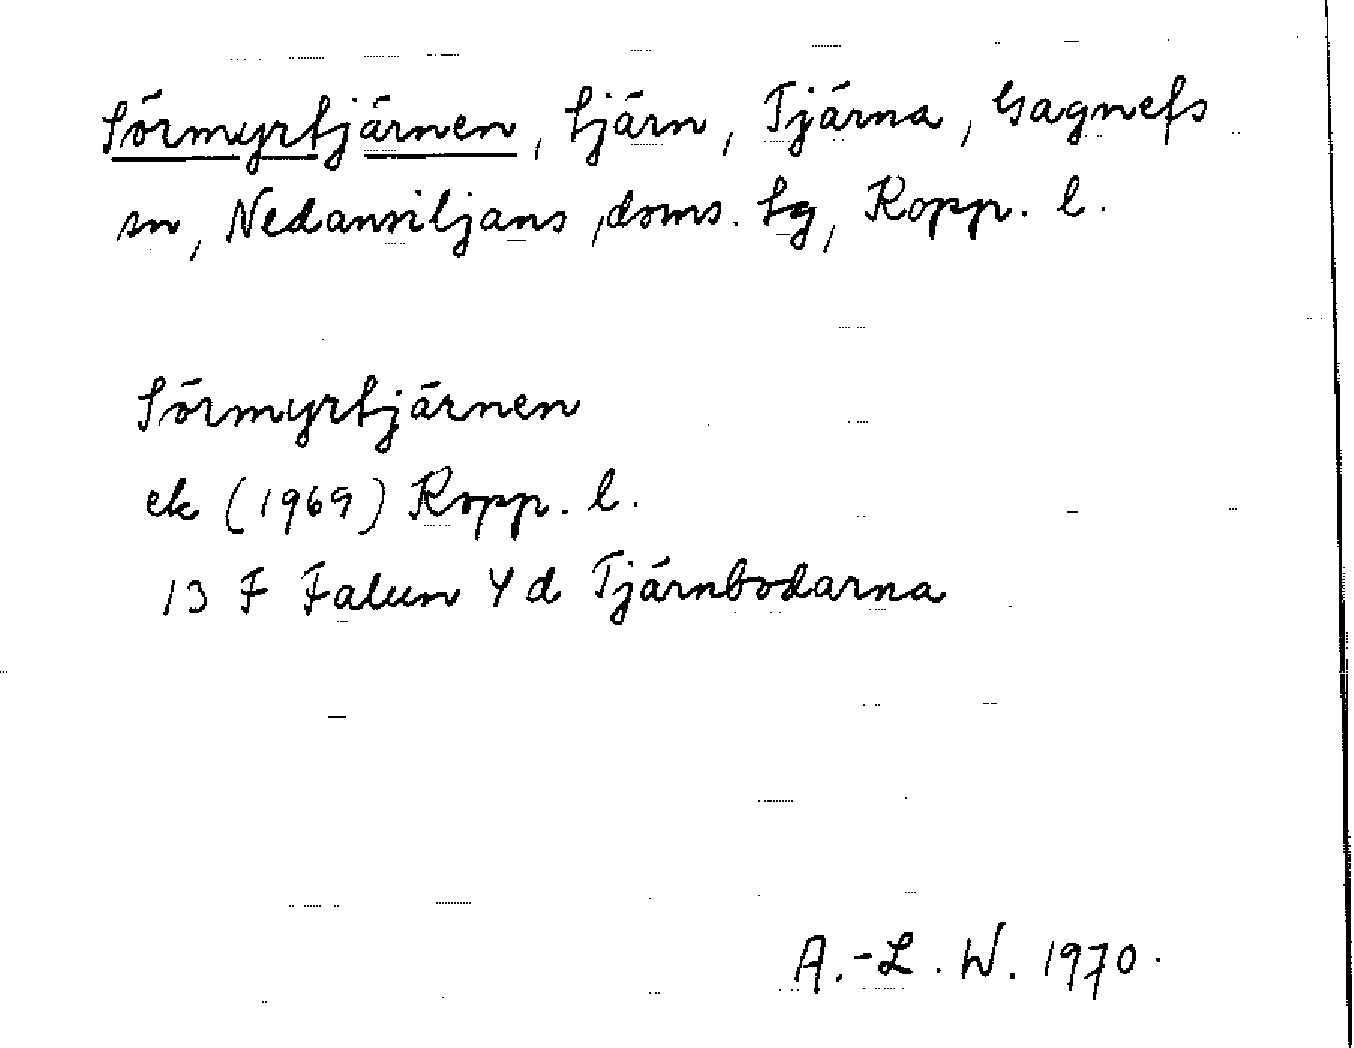 Sörmyrtjärnen, tjärn, Tjärna, Gagnefs
sn, Nedansiljans doms. tg, Kopp. l.
Sörmyrtjärnen
ek (1969) Kopp. l.
13 F Falun 4 d Tjärnbodarna
A.-L. W. 1970.